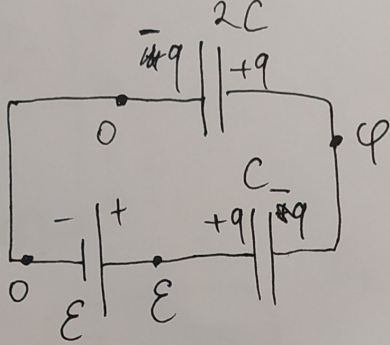 2C
-q +q
0
φ
C
- +
+q -q
0
ε
ε